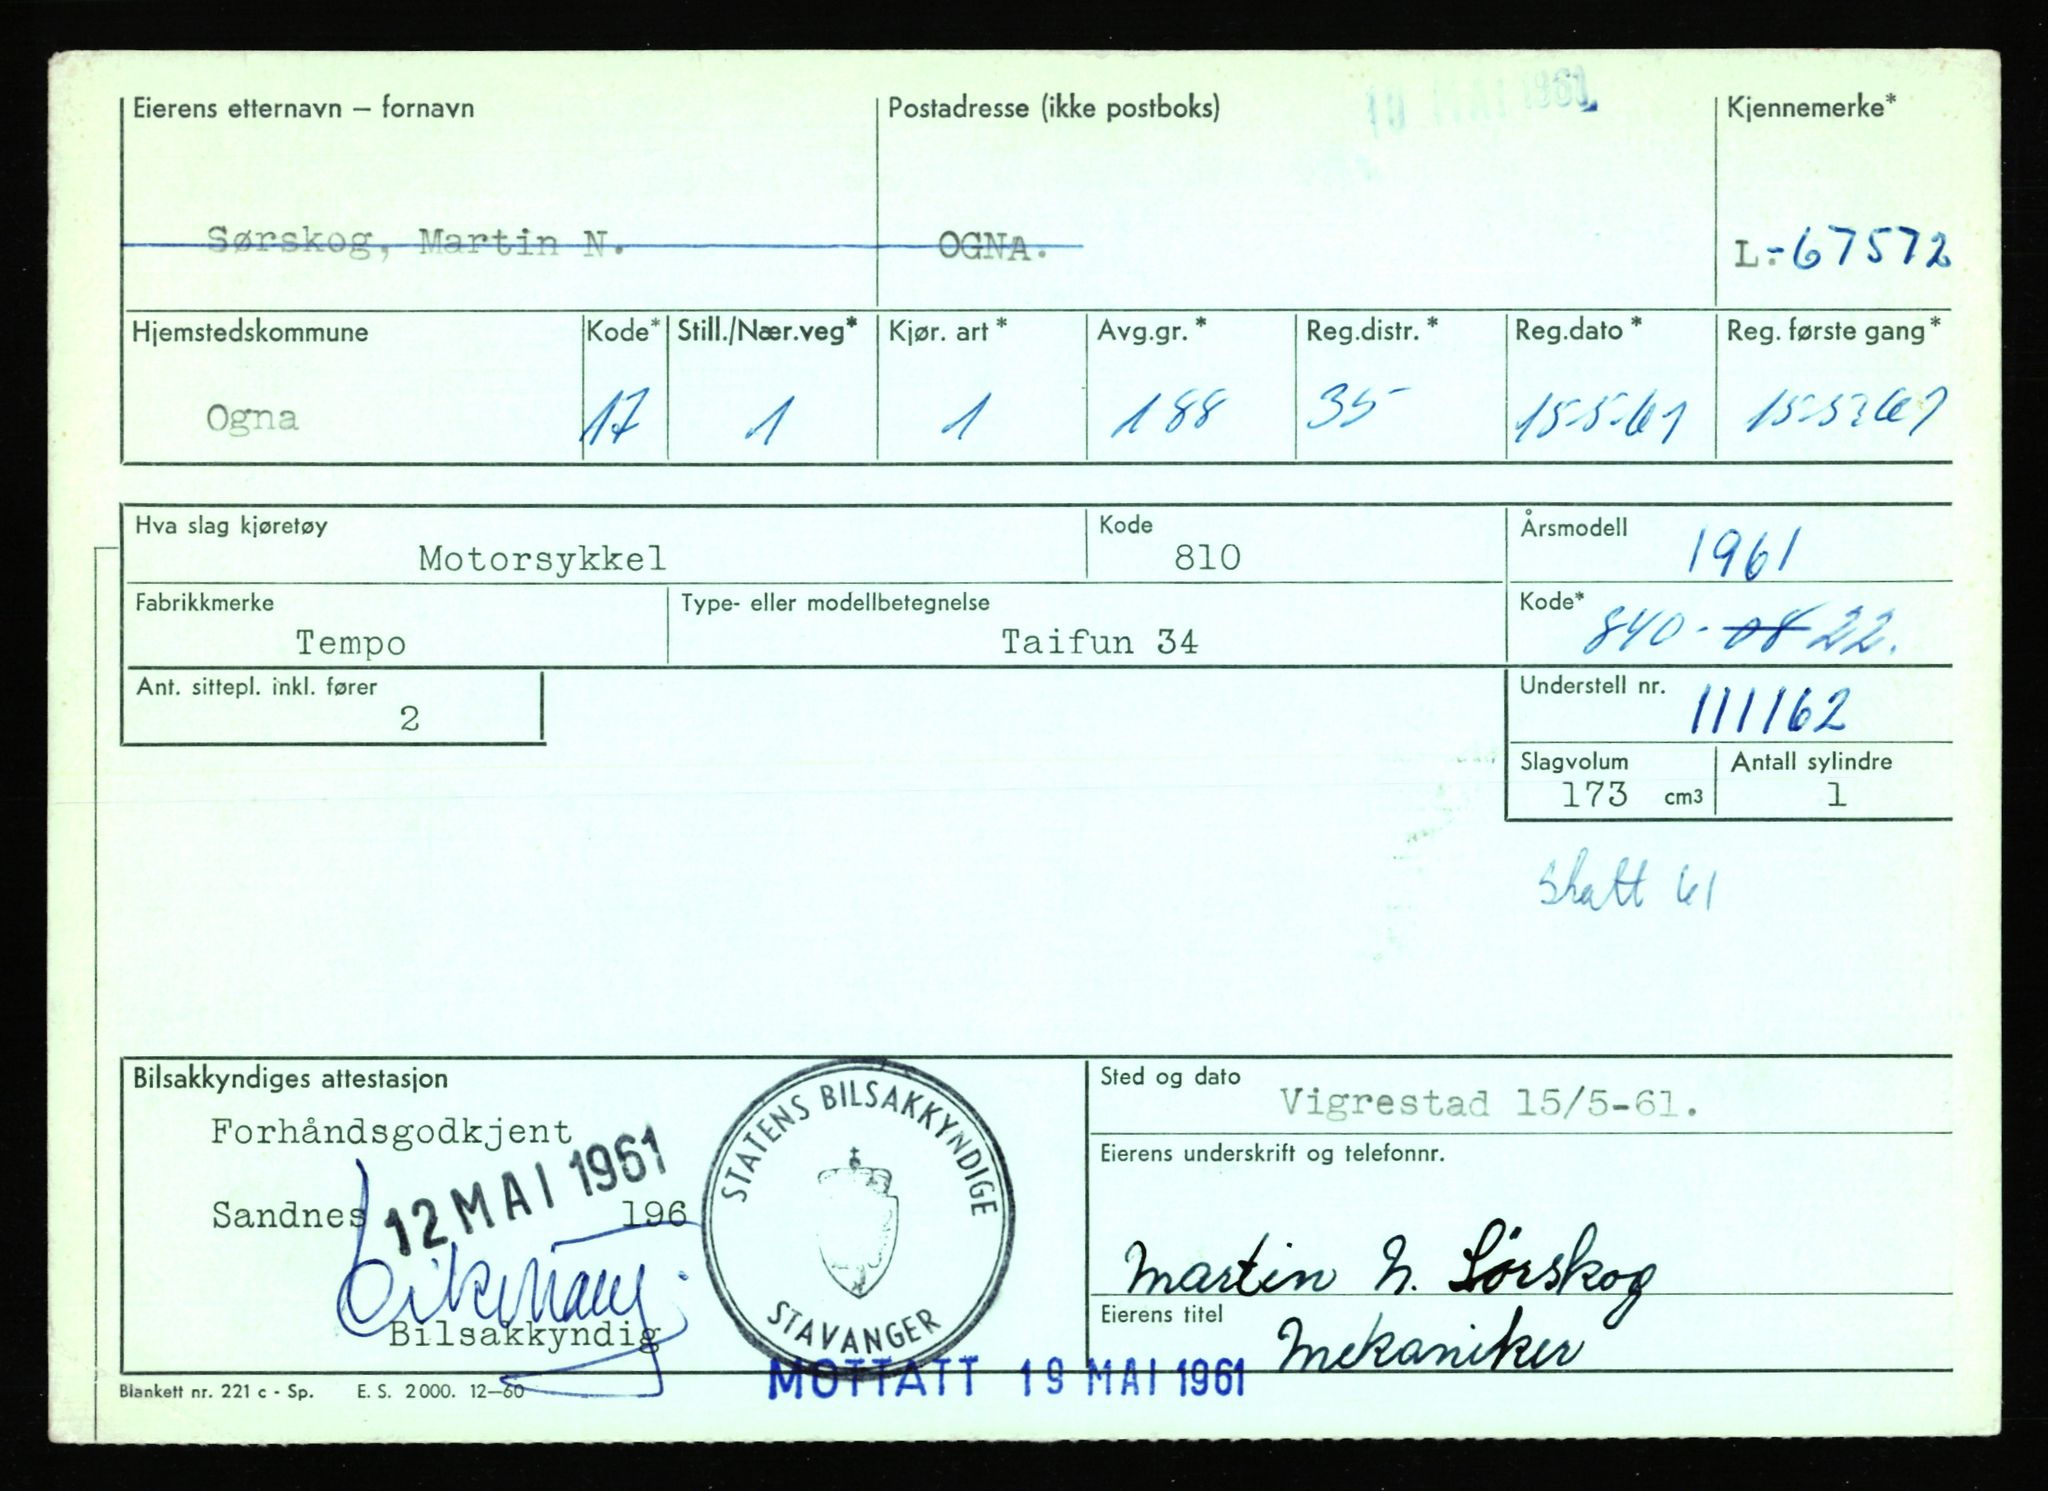 Eierens etternavn – fornavn Postadresse (ikke postboks) Kjennemerke*
Sørskog, Martin N. OGNA. L.-67572
Hjemstedskommune Kode* Still./Nær.veg* Kjør. art* Avg.gr.* Reg.distr.* Reg.dato* Reg. første gang*
Ogna 17 1 1 188 35 15-5-61 15-5-61
Hva slag kjøretøy Kode Årsmodell
Motorsykkel 810 1961
Fabrikkmerke Type- eller modellbetegnelse Kode*
Tempo Taifun 34 840-08 22.
Ant. sittepl. inkl. fører Understell nr.
2 111162
Slagvolum Antall sylindre
173 cm3 1
Skatt 61
Bilsakkyndiges attestasjon Sted og dato
Vigrestad 15/5-61.
Forhåndsgodkjent
Eierens underskrift og telefonnr.
12 MAI 1961
Sandnes 196
STATENS BILSAKKYNDIGE
STAVANGER
Martin N. Sørskog
Bilsakkyndig
Eierens titel
Mekaniker
MOTTATT 19 MAI 1961
Blankett nr. 221 c - Sp. E. S. 2000. 12–60